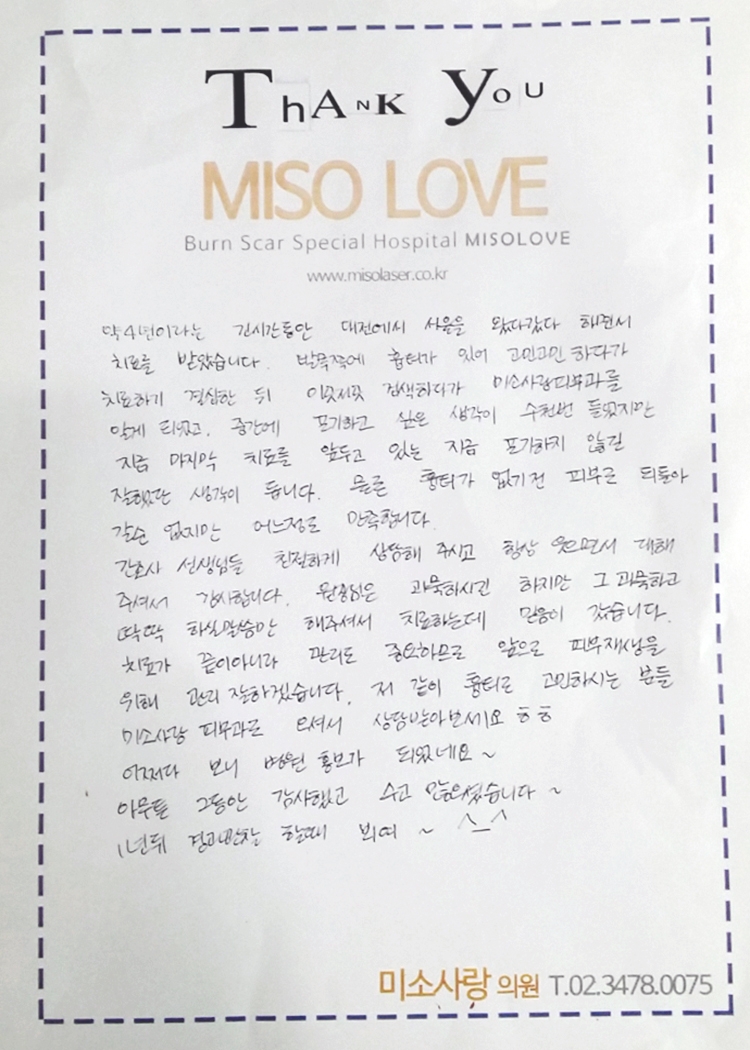 THANK YOU
MISO LOVE
Burn Scar Special Hospital MISOLOVE
www.misolaser.co.kr
약4년이라는 긴시간동안 대전에서 서울을 왔다갔다 해면서
치료를 받았습니다. 발목쪽에 흉터가 있어 고민고민 하다가
치료하기 결심한 뒤 이곳저곳 검색하다가 미소사랑피부과를
알게 되었고, 중간에 포기하고 싶은 생각이 수천번 들었지만
지금 마지막 치료를 앞두고 있는 지금 포기하지 않길
잘했단 생각이 듭니다. 물론 흉터가 없기전 피부로 되돌아
갈순 없지만 어느정도 만족합니다.
간호사 선생님들 친절하게 상담해 주시고 항상 웃으면서 대해
주셔서 감사합니다. 원장님은 과묵하시긴 하지만 그 과묵하고
딱딱 하실말씀만 해주셔서 치료하는데 믿음이 갔습니다.
치료가 끝이아니라 관리도 중요하므로 앞으로 피부재생을
위해 관리 잘하겠습니다. 저 같이 흉터로 고민하시는 분들
미소사랑 피부과로 오셔서 상담받아보세요 ㅎㅎ
어쩌다 보니 병원 홍보가 되었네요 ~
아무튼 그동안 감사했고 수고 많으셨습니다 ~
1년뒤 경과관찰 할때 뵈여 ~ ^_^
미소사랑 의원 T.02.3478.0075